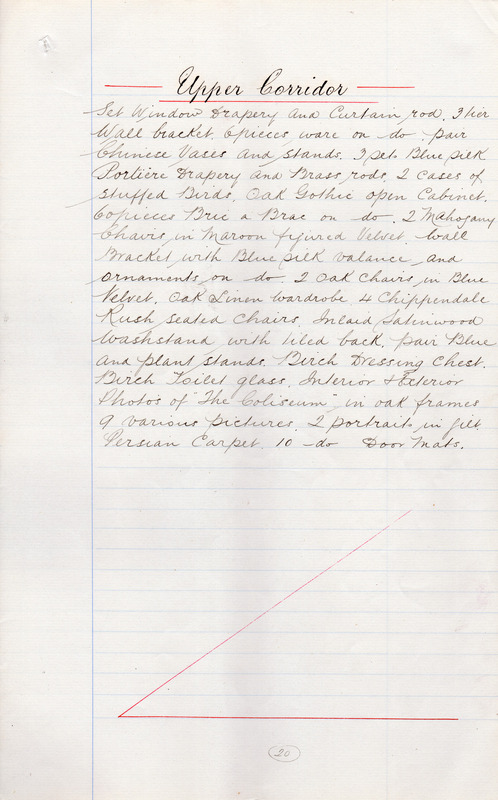 Upper Corridor
Set Window Drapery and Curtain rod. 3 tier
Wall bracket. 6 pieces ware on do. pair
Chinese Vases and stands. 3 sets Blue silk
Portiere Drapery and Brass rods. 2 cases of
stuffed Birds. Oak Gothic open Cabinet.
60 pieces Bric a Brac on do. 2 Mahogany
Chairs in Maroon figured Velvet. Wall
Bracket with Blue silk valance and
ornaments on do. 2 oak Chairs in Blue
Velvet. Oak Linen wardrobe. 4 Chippendale
Rush seated Chairs. Inlaid Satinwood
Washstand with tiled back. pair Blue
and plant stands. Birch Dressing Chest.
Birch Toilet glass. Interior & Exterior
Photos of "The Coliseum" in oak frames
9 various pictures. 2 portraits in gilt.
Persian Carpet. 10 - do Door Mats.
20